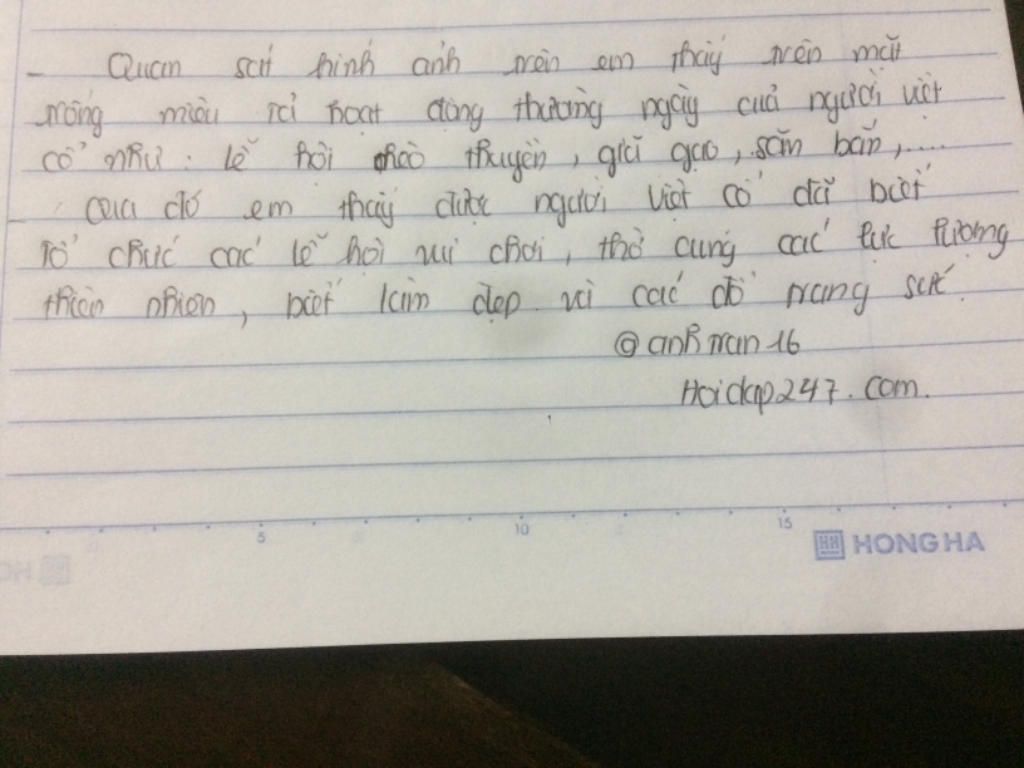 - Quan sát hình ảnh trên em thấy trên mặt
trống miêu tả hoạt động thường ngày của người việt
cổ như: lễ hội chèo thuyền, giã gạo, săn bắn,....
- Qua đó em thấy được người Việt cổ đã biết
tổ chức các lễ hội vui chơi, thờ cúng các lực lượng
thiên nhiên, biết làm đẹp với các đồ trang sức.
@anhtran16
Hoidap247.com.
5 10 15
HONG HA